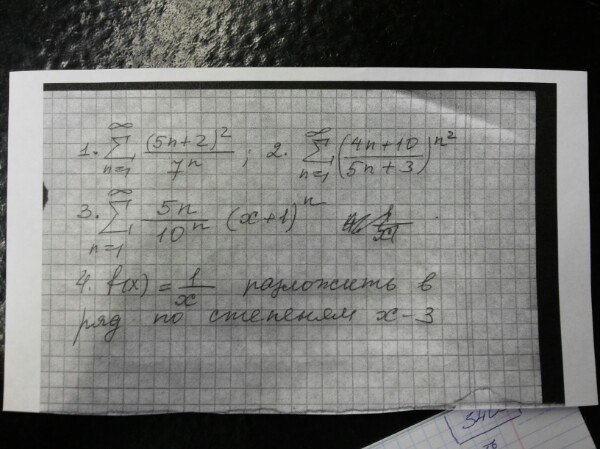 1. ∑_{n=1}^{∞} (5n+2)^2 / 7^n ; 2. ∑_{n=1}^{∞} ((4n+10)/(5n+3))^{n^2}
3. ∑_{n=1}^{∞} 5n / 10^n (x+1)^n
4. f(x) = 1/x разложить в
ряд по степеням x-3